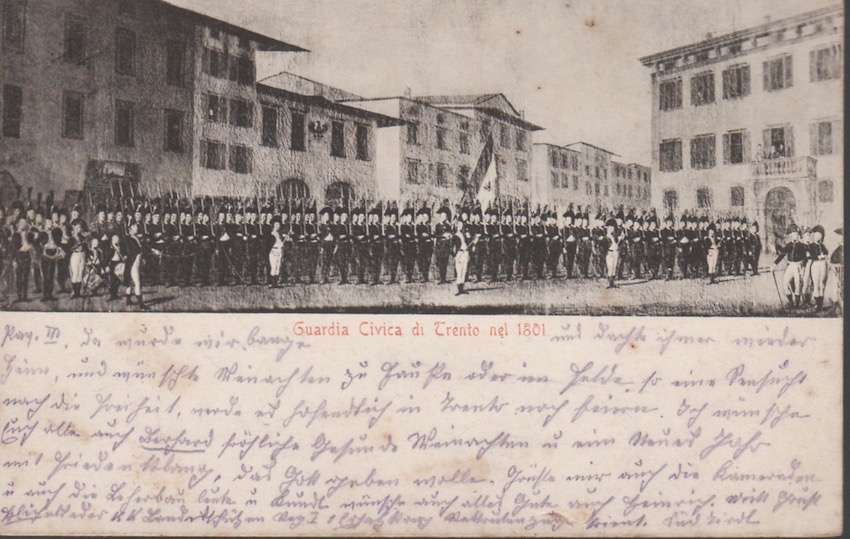 Guardia Civica di Trento nel 1801
Pav. III, da wurde mir bange und dachte immer wieder
Heim, und wünschte Weinachten zu Hause oder im Felde, so eine Sensucht
nach die Freiheit, werde es hofendlich in Trento noch feiern. Ich wünsche
Euch alle auch Berhard fröhliche Gesunde Weinachten u ein Neues Jahr
mit Frieden, das Gott geben wolle. Grüße mir auch die Kameraden
u auch die leute u wünsche auch alles Gute auch Heinrich.
KK Landesschützen Reg I Trient. Süd Tirol